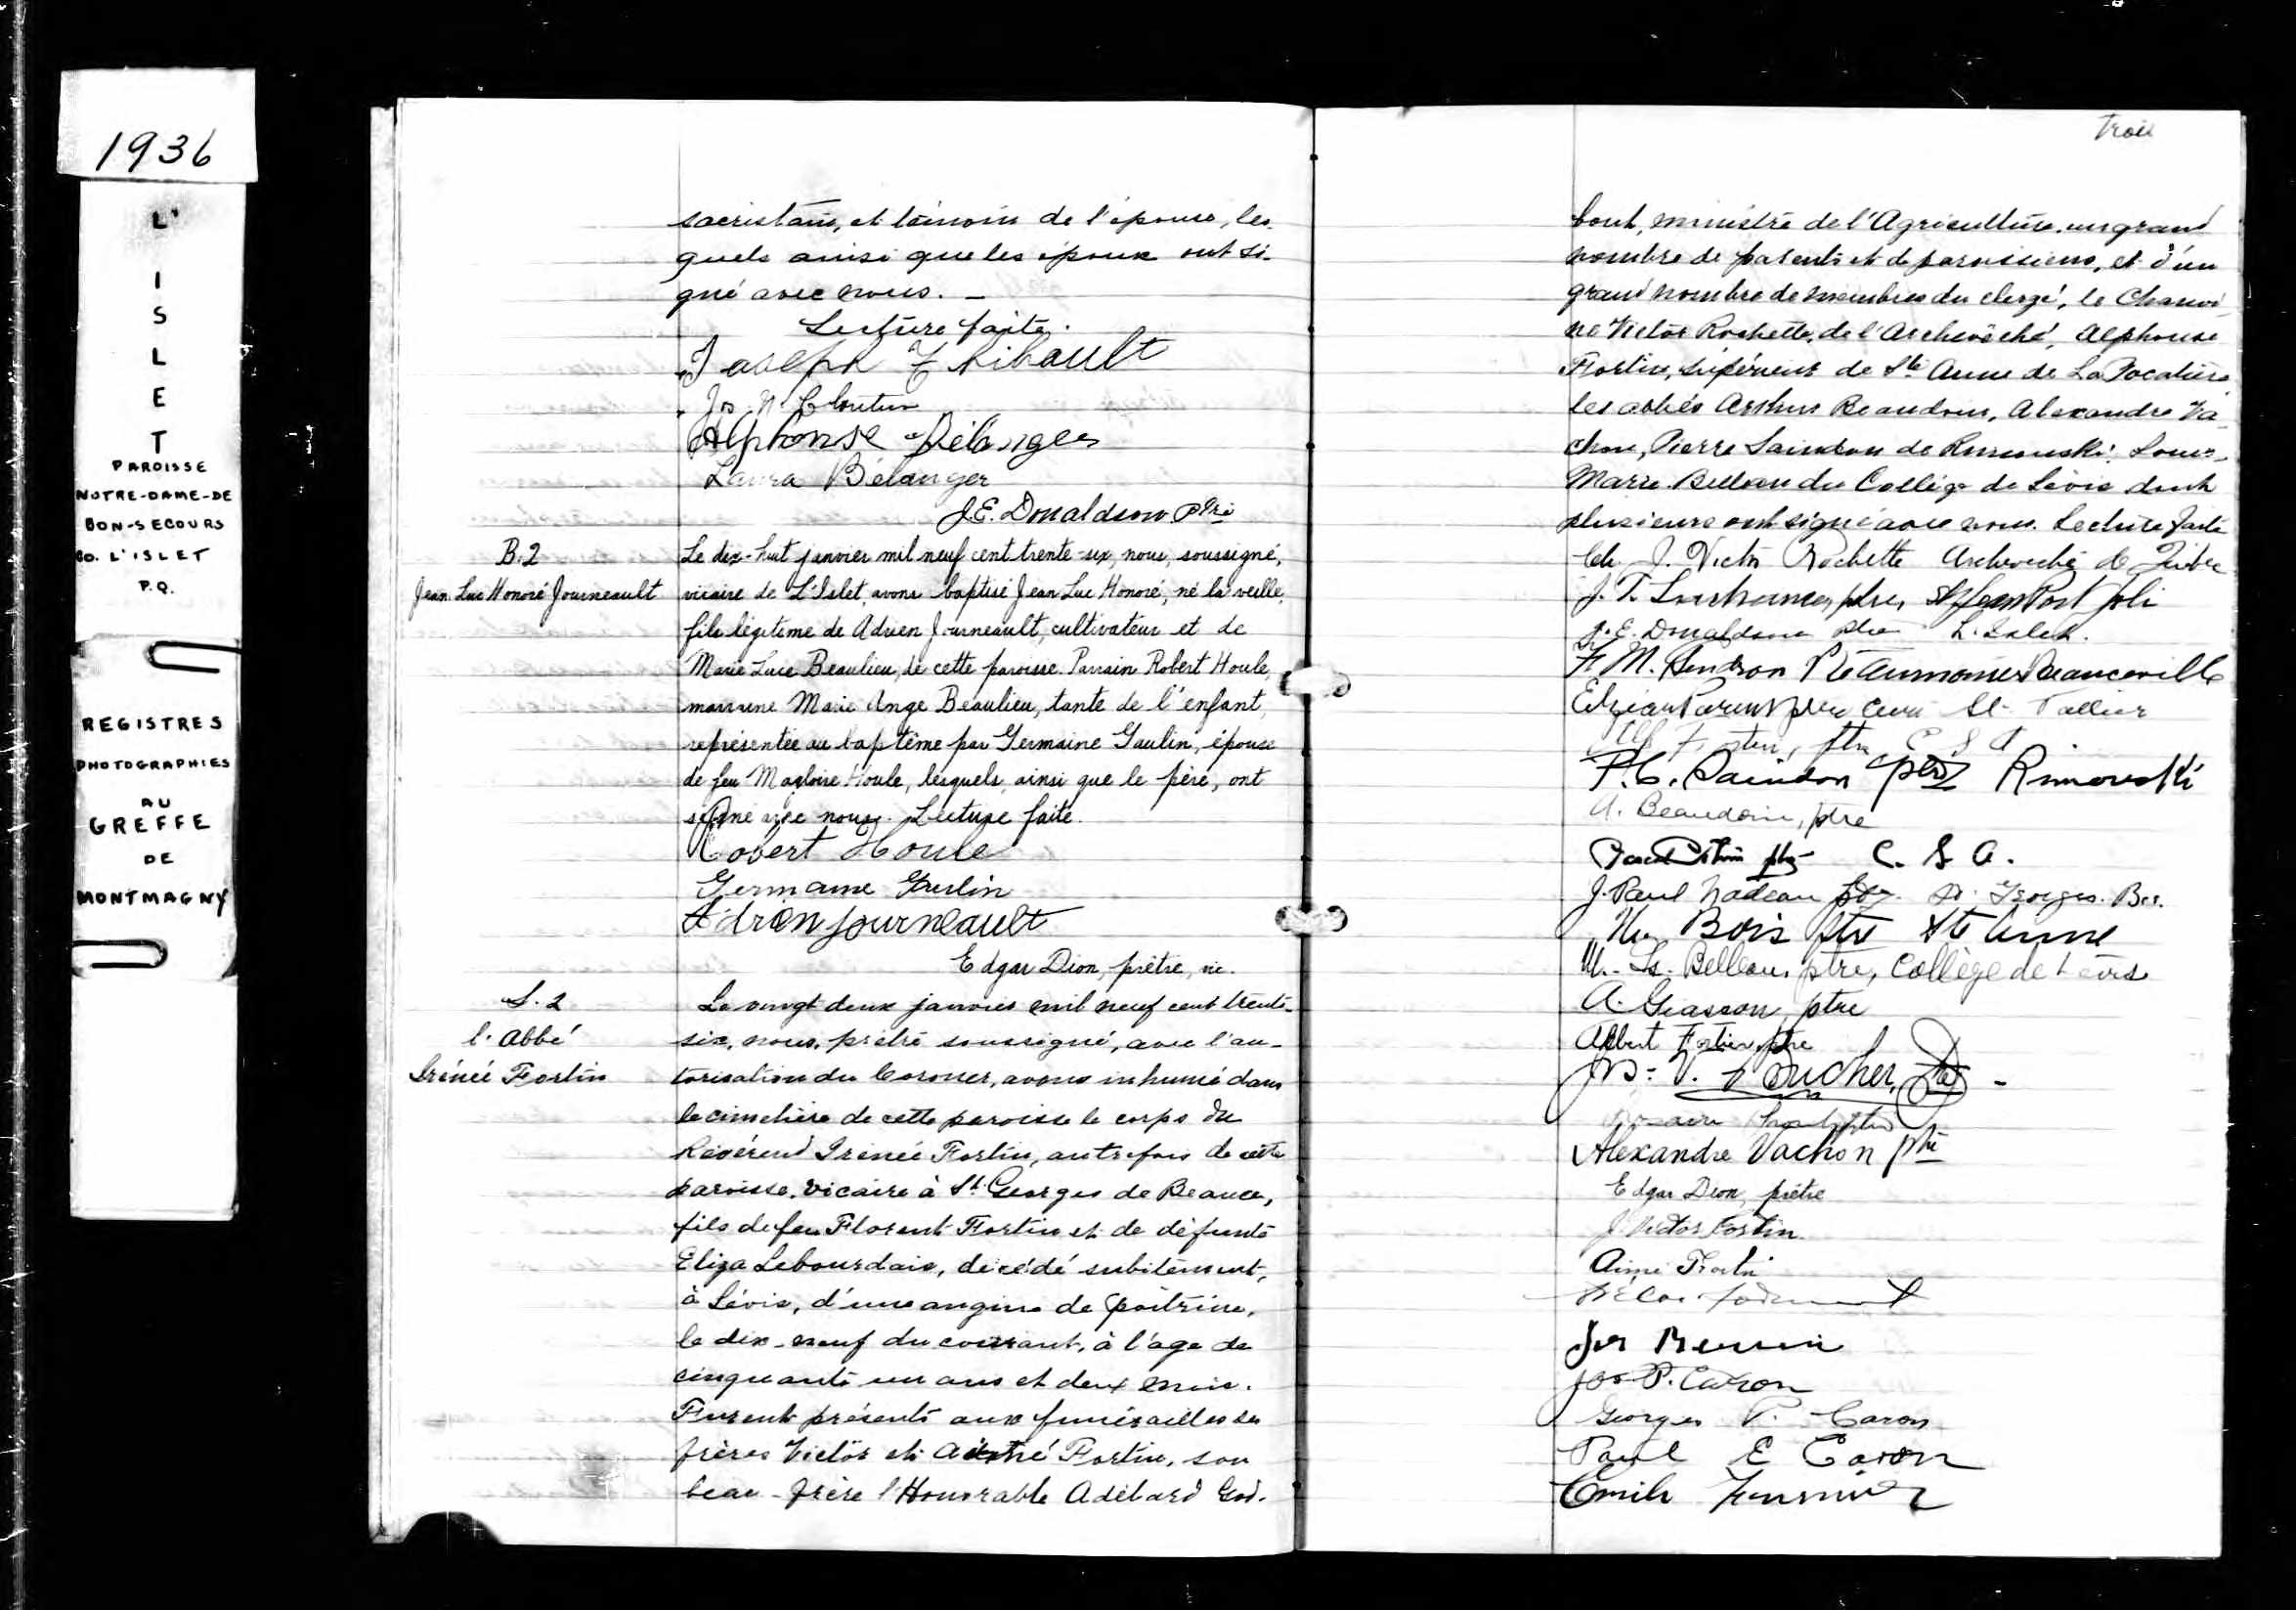 1936
L'
I
S
L
E
T
PAROISSE
NOTRE-DAME-DE
BON-SECOURS
CO. L'ISLET
P.Q.
REGISTRES
PHOTOGRAPHIES
AU
GREFFE
DE
MONTMAGNY
sacristain, et témoin de l'épouse, les
quels ainsi que les époux ont si-
gné avec nous. -
Lecture faite.
Joseph Thibault
Jos. N. Cloutier
Alphonse Bélanger
Laura Bélanger
J.E. Donaldson Ptre
B.2
Jean Luc Honoré Journeault
Le dix-huit janvier mil neuf cent trente-six, nous, soussigné,
vicaire de L'Islet, avons baptisé Jean Luc Honoré, né la veille,
fils légitime de Adrien Journeault, cultivateur et de
Marie Luce Beaulieu, de cette paroisse. Parrain Robert Houle,
marraine Marie Ange Beaulieu, tante de l'enfant,
représentée au baptême par Germaine Gaulin, épouse
de feu Magloire Houle, lesquels, ainsi que le père, ont
signé avec nous. Lecture faite.
Robert Houle
Germaine Gaulin
Adrien Journeault
Edgar Dion, prêtre, vic.
S. 2
l'Abbé
Irénée Fortin
Le vingt deux janvier mil neuf cent trente-
six, nous, prêtre soussigné, avec l'au-
torisation du Coroner, avons inhumé dans
le cimetière de cette paroisse le corps du
Révérend Irénée Fortin, autrefois de cette
paroisse, vicaire à St. Georges de Beauce,
fils de feu Florent Fortin et de défunte
Eliza Lebourdais, décédé subitement,
à Lévis, d'une angine de poitrine,
le dix-neuf du courant, à l'age de
cinquante un ans et deux mois.
Furent présents aux funérailles ses
frères Victor et Fortin, son
beau-frère l'Honorable Adélard God-
Trois
bout, ministre de l'Agriculture, un grand
nombre de parents et de paroissiens, et d'un
grand nombre de membres du clergé, le Chanoi-
ne Victor Rochette, de l'Archevêché, Alphonse
Fortin, Supérieur de Ste Anne de La Pocatière
les abbés Arthur Beaudoin, Alexandre Va-
chon, Pierre Saindon de Rimouski, Louis-
Marie Belleau du Collège de Lévis dont
plusieurs ont signé avec nous. Lecture faite
Ch. J. Victor Rochette Archevêché de Québec
J. T. ptre, St Jean Port Joli
J.E. Donaldson Ptre L'Islet.
M. Gendron Ptre aumonier Beauceville
Elzéar Parent ptre curé St-
Fortin, ptre C S A
P.C. Saindon ptre Rimouski
A. Beaudoin, ptre
ptre C. S. A.
J. Paul Nadeau ptre St. Georges. Bce.
Bois ptre Ste Anne
M.-Ls. Belleau, ptre, Collège de Lévis
A. Giasson, ptre
Albert Fortier, ptre
Jos: V.
Alexandre Vachon ptre
Edgar Dion, prêtre
J. Victor Fortin
Aimé Fortin
Jos
Jos P. Caron
Georges P. Caron
Paul E Caron
Emile Fournier